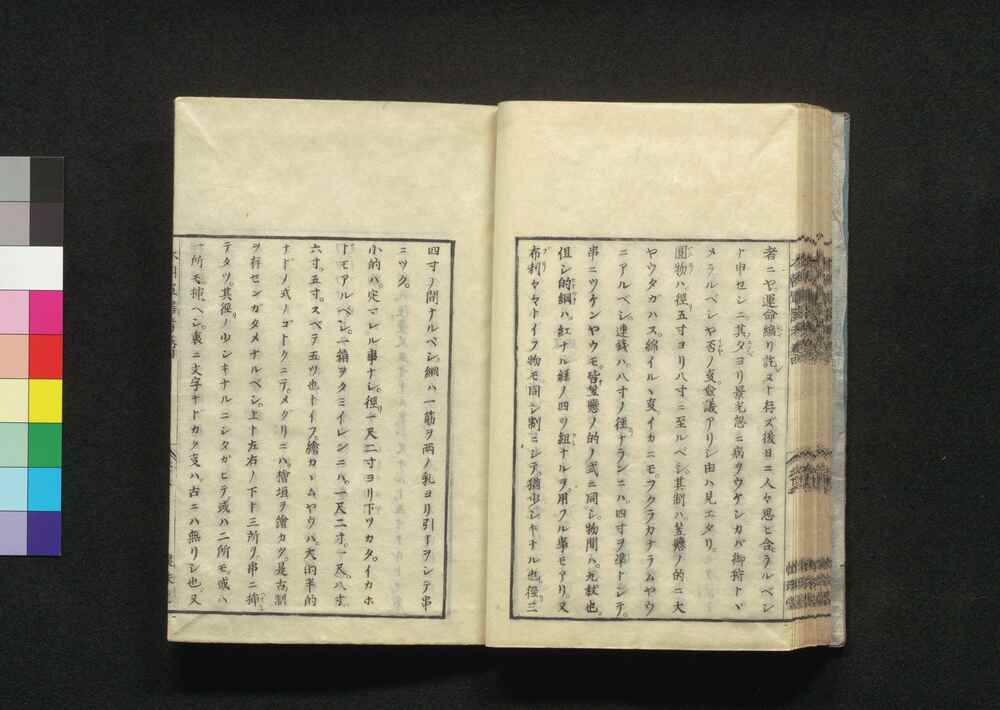 者ニヤ運命縮リ詫ヌト存ズ後日ニ人々思ヒ合ラルベシ
ト申セシニ其夕ヨリ景光忽ニ病ヲウケシカバ御狩トヾ
メラルベシヤ否ノ亥僉議アリシ由ハ見エタリ
圓物ハ徑五寸ヨリ八寸ニ至ルベシ其制ハ笠懸ノ的ニ大
ヤウタガハス綿イルヽ亥イカニモフクラカナラムヤウ
ニアルベシ連錢ハ八寸ノ徑ナランニハ四寸ヲ準トシテ
串ニツケンヤウモ皆笠懸ノ的ノ式ニ同シ物間ハ九杖也
但シ的綱ハ紅ナル絲ノ四ツ組ナルヲ用フル事モアリ又
布利々々トイフ物モ同シ制ニシテ猶少シキナル也徑三
四寸ノ間ナルベシ綱ハ一筋ヲ兩ノ乳ヨリ引トヲシテ串
ニツク
小的ハ定マレル事ナシ徑一尺二寸ヨリ下ツカタイカホ
トモアルベシ一箱ヲタミイレンニハ一尺二寸一尺八寸
六寸五寸スベテ五ツ也トイフ繪カヽムヤウハ大的半的
ナドノ式ノゴトクニテメクリニハ檜垣ヲ繪カク是古制
ヲ存センガタメナルベシ上ト左右ノ下ト三所ヲ串ニ挿
テタツ其徑ノ少シキナルニシタガヒテ或ハ二所モ或ハ
一所モ挿ヘシ裏ニ文字ナドカク亥ハ古ニハ無リシ也又